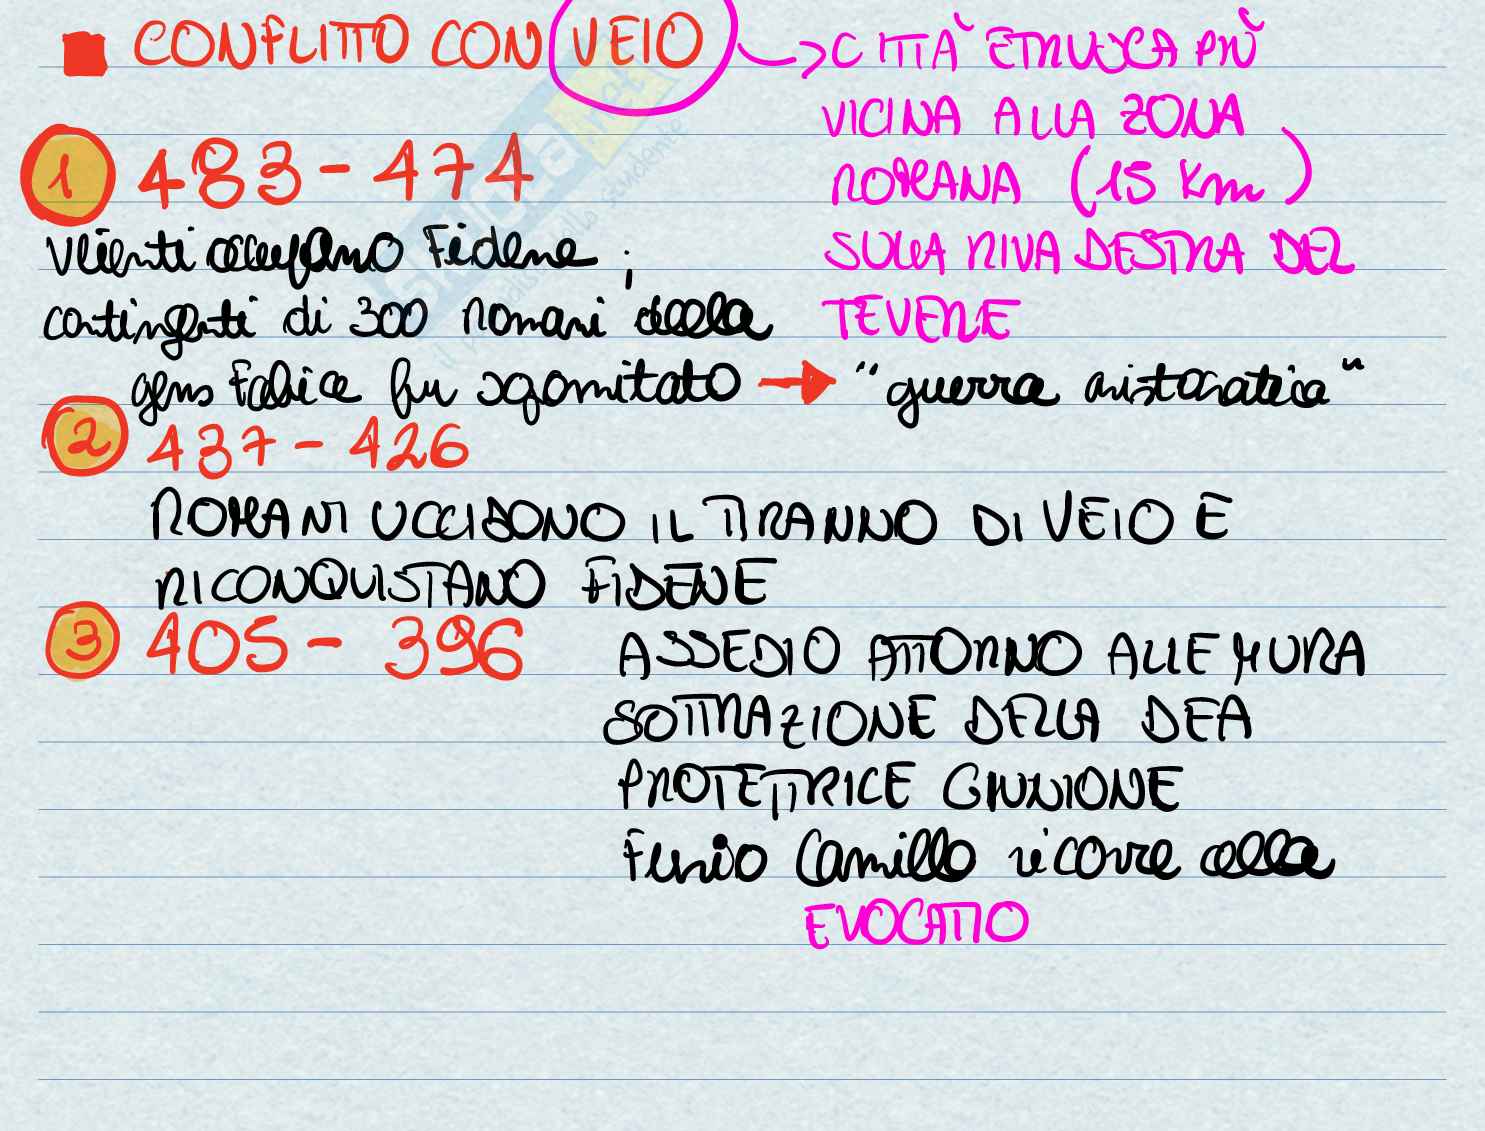 CONFLITTO CON VEIO → CITTÀ ETRUSCA PIÙ
VICINA ALLA ZONA
ROMANA (15 Km)
SULLA RIVA DESTRA DEL
TEVERE
1 483 - 474
Veienti occupano Fidene ;
contingenti di 300 romani della
gens Fabia fu sgomitato → "guerra aristocratica"
2 437 - 426
ROMANI UCCIDONO IL TIRANNO DI VEIO E
RICONQUISTANO FIDENE
3 405 - 396 ASSEDIO ATTORNO ALLE MURA
SOTTRAZIONE DELLA DEA
PROTETTRICE GIUNIONE
Furio Camillo ricorre alla
EVOCATIO